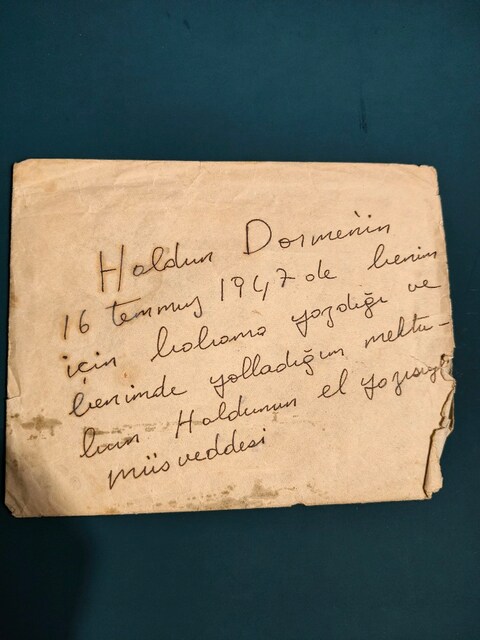 Haldun Dormen'in
16 temmuz 1947 de benim
için babama yazdığı ve
benimde yolladığım mektu-
bun Haldunun el yazısıyla
müsveddesi